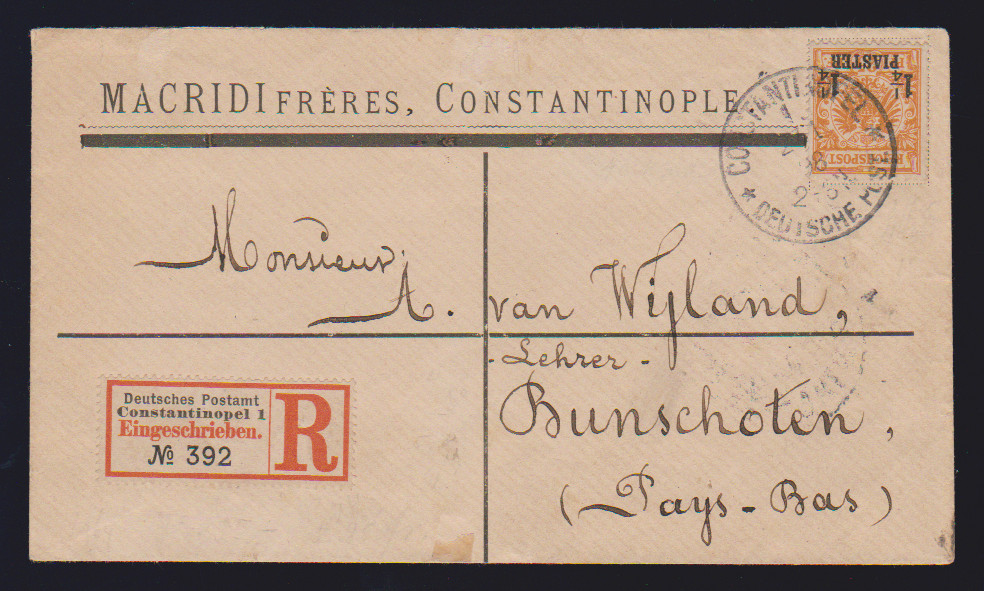 MACRIDI FRÈRES, CONSTANTINOPLE
1¼ 1¼
PIASTER
REICHSPOST
CONSTANTINOPEL
* DEUTSCHE POST
Monsieur
A. van Wijland,
- Lehrer -
Bunschoten,
(Pays-Bas)
Deutsches Postamt
Constantinopel 1
Eingeschrieben.
№ 392
R